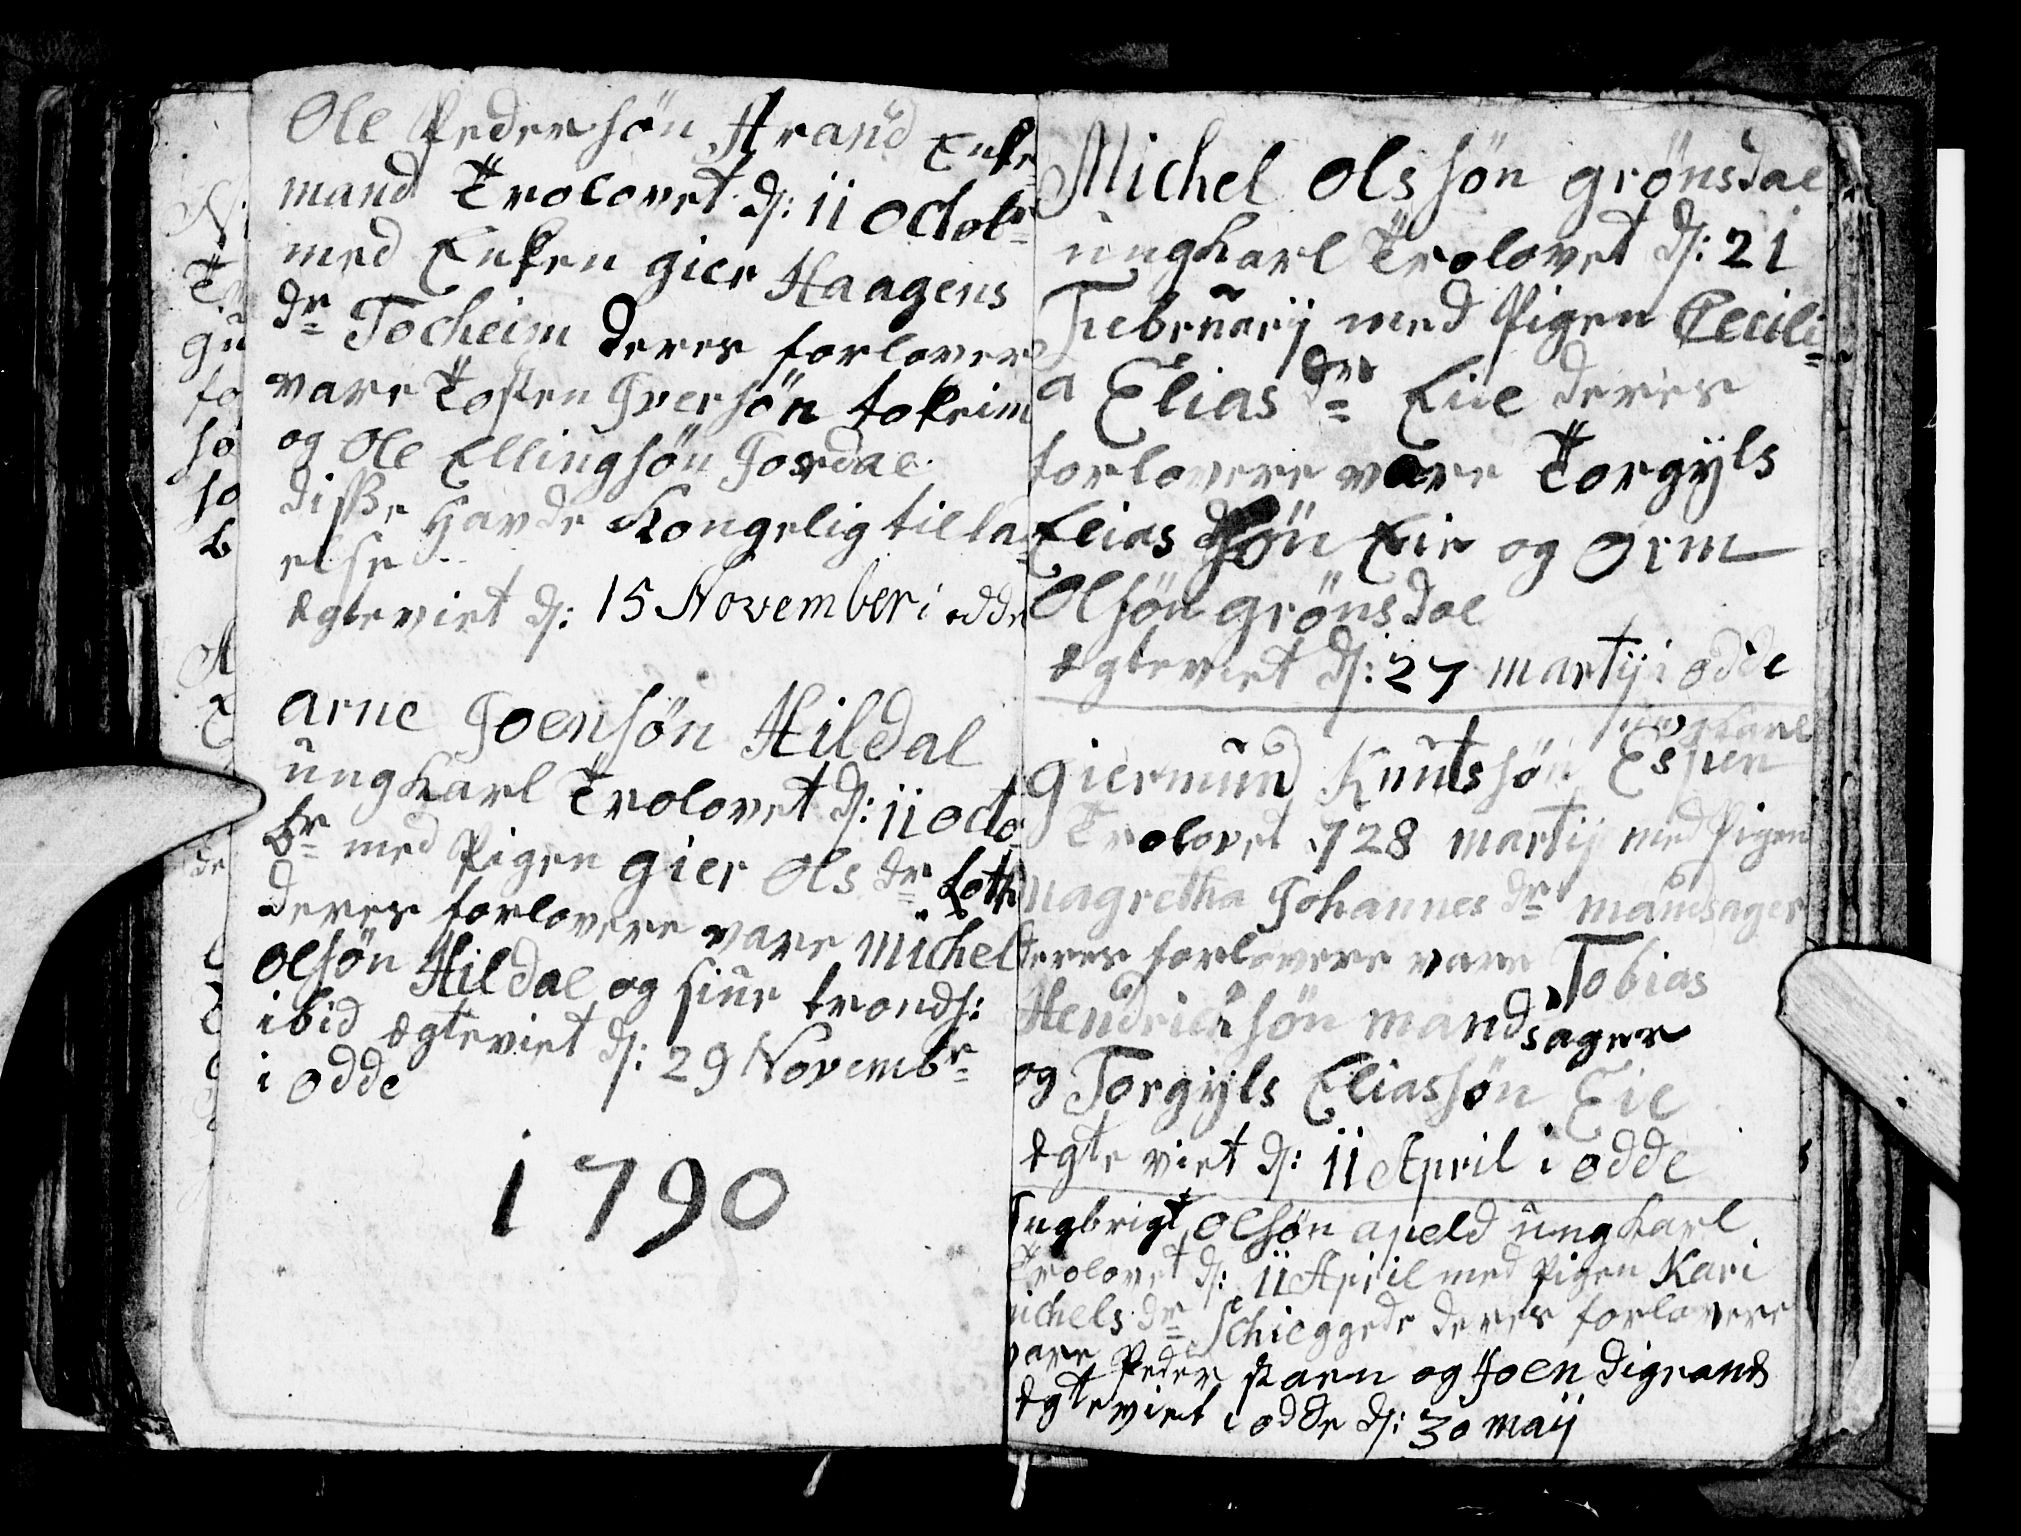 Ole Pedersøn Arand Enke-
mand Trolovet d: 11 octobr
med Enken gier Haagens
dr Tocheim deres forlover
vare Tosten Iversøn tokeim
og Ole Ellingsøn Jordal.
disse havde Kongelig tilla-
else
Egteviet d: 15 November i odde
Arne Joensøn Hildal
ungkarl Trolovet d: 11 octo
br med Pigen gier Ols dr Loth
deres forlovere vare Michel
olsøn Hildal og siur tronds:
ibid Egteviet d: 29 Novembr
i odde
1790
Michel Olssøn grønsdal
ungkarl Trolovet d: 21
Februarij med Pigen Cecili-
a Elias dr Eiie deres
forlovere vare Torgyls
Elias søn Eie og Orm
Olsøn grønsdal
Egteviet d: 27 martij i odde
ungkarl
giermund Knutssøn Espen
Trolovet 28 martij med Pigen
Magretha Johannes dr mandsager
deres forlovere vare Tobias
Hendrichsøn mandsager
og Torgyls Eliassøn Eie
Egteviet d: 11 April i odde
Ingbrigt olsøn apeld ungkarl
Trolovet d: 11 April med Pigen Kari
ichels dr Schieggede deres forlovere
vare Peder og Joen Digranes
Egteviet i odde d: 30 maij